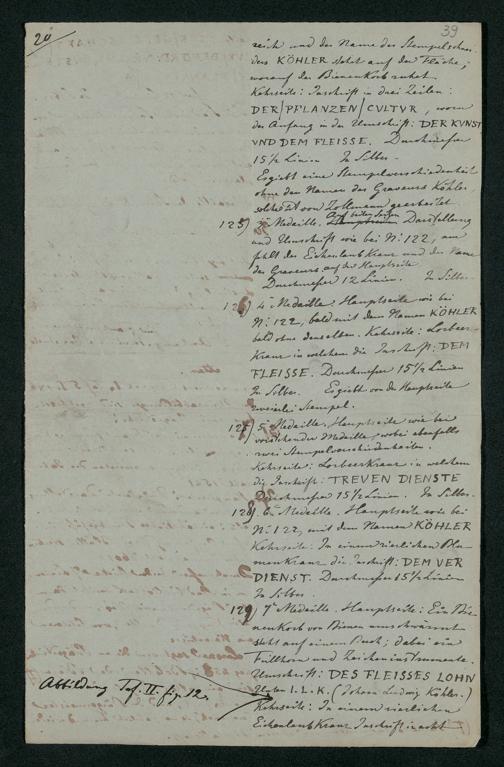 20
39
reich und der Name des Stempelschnei
ders KÖHLER steht auf der Fläche,
worauf der Bienenkorb ruhet.
Kehrseite: Inschrift in drei Zeilen:
DER/PFLANZEN/CVLTVR, worin
der Anfang in der Umschrift: DER KUNST
VND DEM FLEISSE. Durchmesser
15½ Linien In Silber.
Es giebt eine Stempelverschiedenheit
ohne den Namen des Graveurs Köhler
solche ist von Zollmann gearbeitet
125) Medaille. Auf beiden Seiten Darstellung
und Umschrift wie bei No 122, nur
fehlt der Eichenlaub Kranz und der Name
des Graveurs auf der Hauptseite
Durchmesser 12 Linien. In Silber
126) 4e Medaille. Hauptseite wie bei
No 122, bald mit dem Namen KÖHLER
bald ohne denselben. Kehrseite: Lorbeer-
Kranz in welchem die Inschrift: DEM
FLEISSE. Durchmesser 15½ Linien
In Silber. Es giebt von der Hauptseite
zweierlei Stempel.
127) 5e Medaille, Hauptseite wie bei
vorstehender Medaille, wobei ebenfalls
zwei Stempelverschiedenheiten.
Kehrseite: Lorbeer Kranz in welchem
die Inschrift: TREVEN DIENSTE
Durchmesser 15½ Linien. In Silber.
128) 6e Medaille. Hauptseite wie bei
No 122, mit dem Namen KÖHLER
Kehrseite: In einem zierlichen Blu
men Kranz die Inschrift: DEM VER
DIENST. Durchmesser 15½ Linien
In Silber
129) 7e Medaille. Hauptseite: Ein Bie
nenkorb von Bienen umschwärmt
steht auf einem Buch; dabei ein
Füllhorn und Zeicheninstrumente.
Umschrift: DES FLEISSES LOHN
Abbildung Taf. II. fig. 12.
Unten I. L. K. (Johann Ludwig Köhler.)
Kehrseite: In einem zierlichen
Eichenlaub Kranz Inschrift in acht